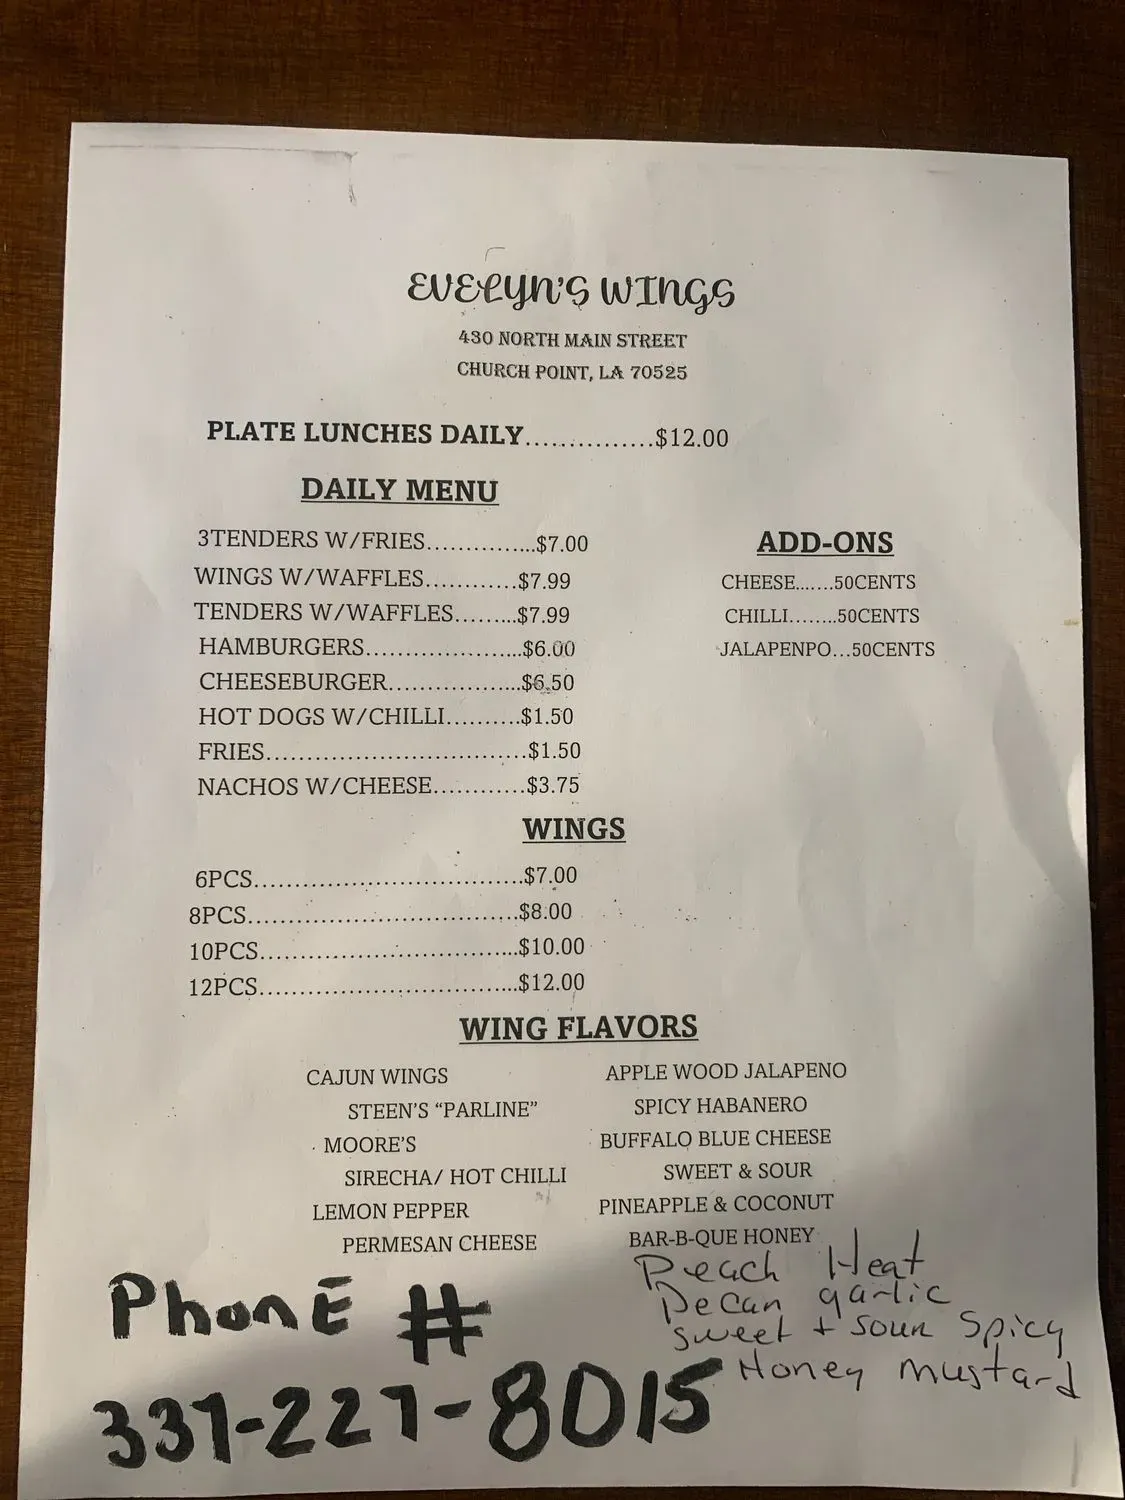 EVELYN'S WINGS
430 NORTH MAIN STREET
CHURCH POINT, LA 70525
PLATE LUNCHES DAILY...............$12.00
DAILY MENU
3TENDERS W/FRIES..............$7.00
WINGS W/WAFFLES...........$7.99
TENDERS W/WAFFLES.........$7.99
HAMBURGERS......................$6.00
CHEESEBURGER...................$6.50
HOT DOGS W/CHILLI..........$1.50
FRIES................................$1.50
NACHOS W/CHEESE............$3.75
ADD-ONS
CHEESE.......50CENTS
CHILLI........50CENTS
JALAPENPO...50CENTS
WINGS
6PCS.................................$7.00
8PCS.................................$8.00
10PCS................................$10.00
12PCS................................$12.00
WING FLAVORS
CAJUN WINGS
STEEN'S "PARLINE"
MOORE'S
SIRECHA/ HOT CHILLI
LEMON PEPPER
PERMESAN CHEESE
APPLE WOOD JALAPENO
SPICY HABANERO
BUFFALO BLUE CHEESE
SWEET & SOUR
PINEAPPLE & COCONUT
BAR-B-QUE HONEY
Peach Heat
Pecan garlic
sweet + sour Spicy
Honey Mustard
PhonE #
337-227-8015